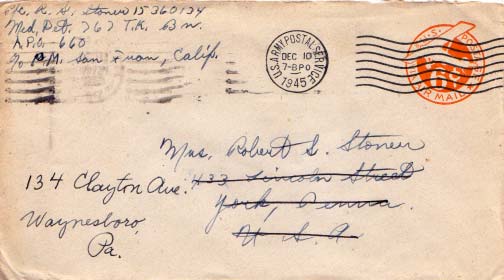 R. S. Stoner 15360134
Med. Det. 767 T.K. Bn.
A.P.O. - 660
c/o P.M. San Fran, Calif.
U.S. ARMY POSTAL SERVICE
DEC 10
7-8PM
1945
U.S. POSTAGE
6¢
AIR MAIL
Mrs. Robert S. Stoner
134 Clayton Ave. 433 Lincoln Street
Waynesboro, York, Penna.
Pa. U.S.A.